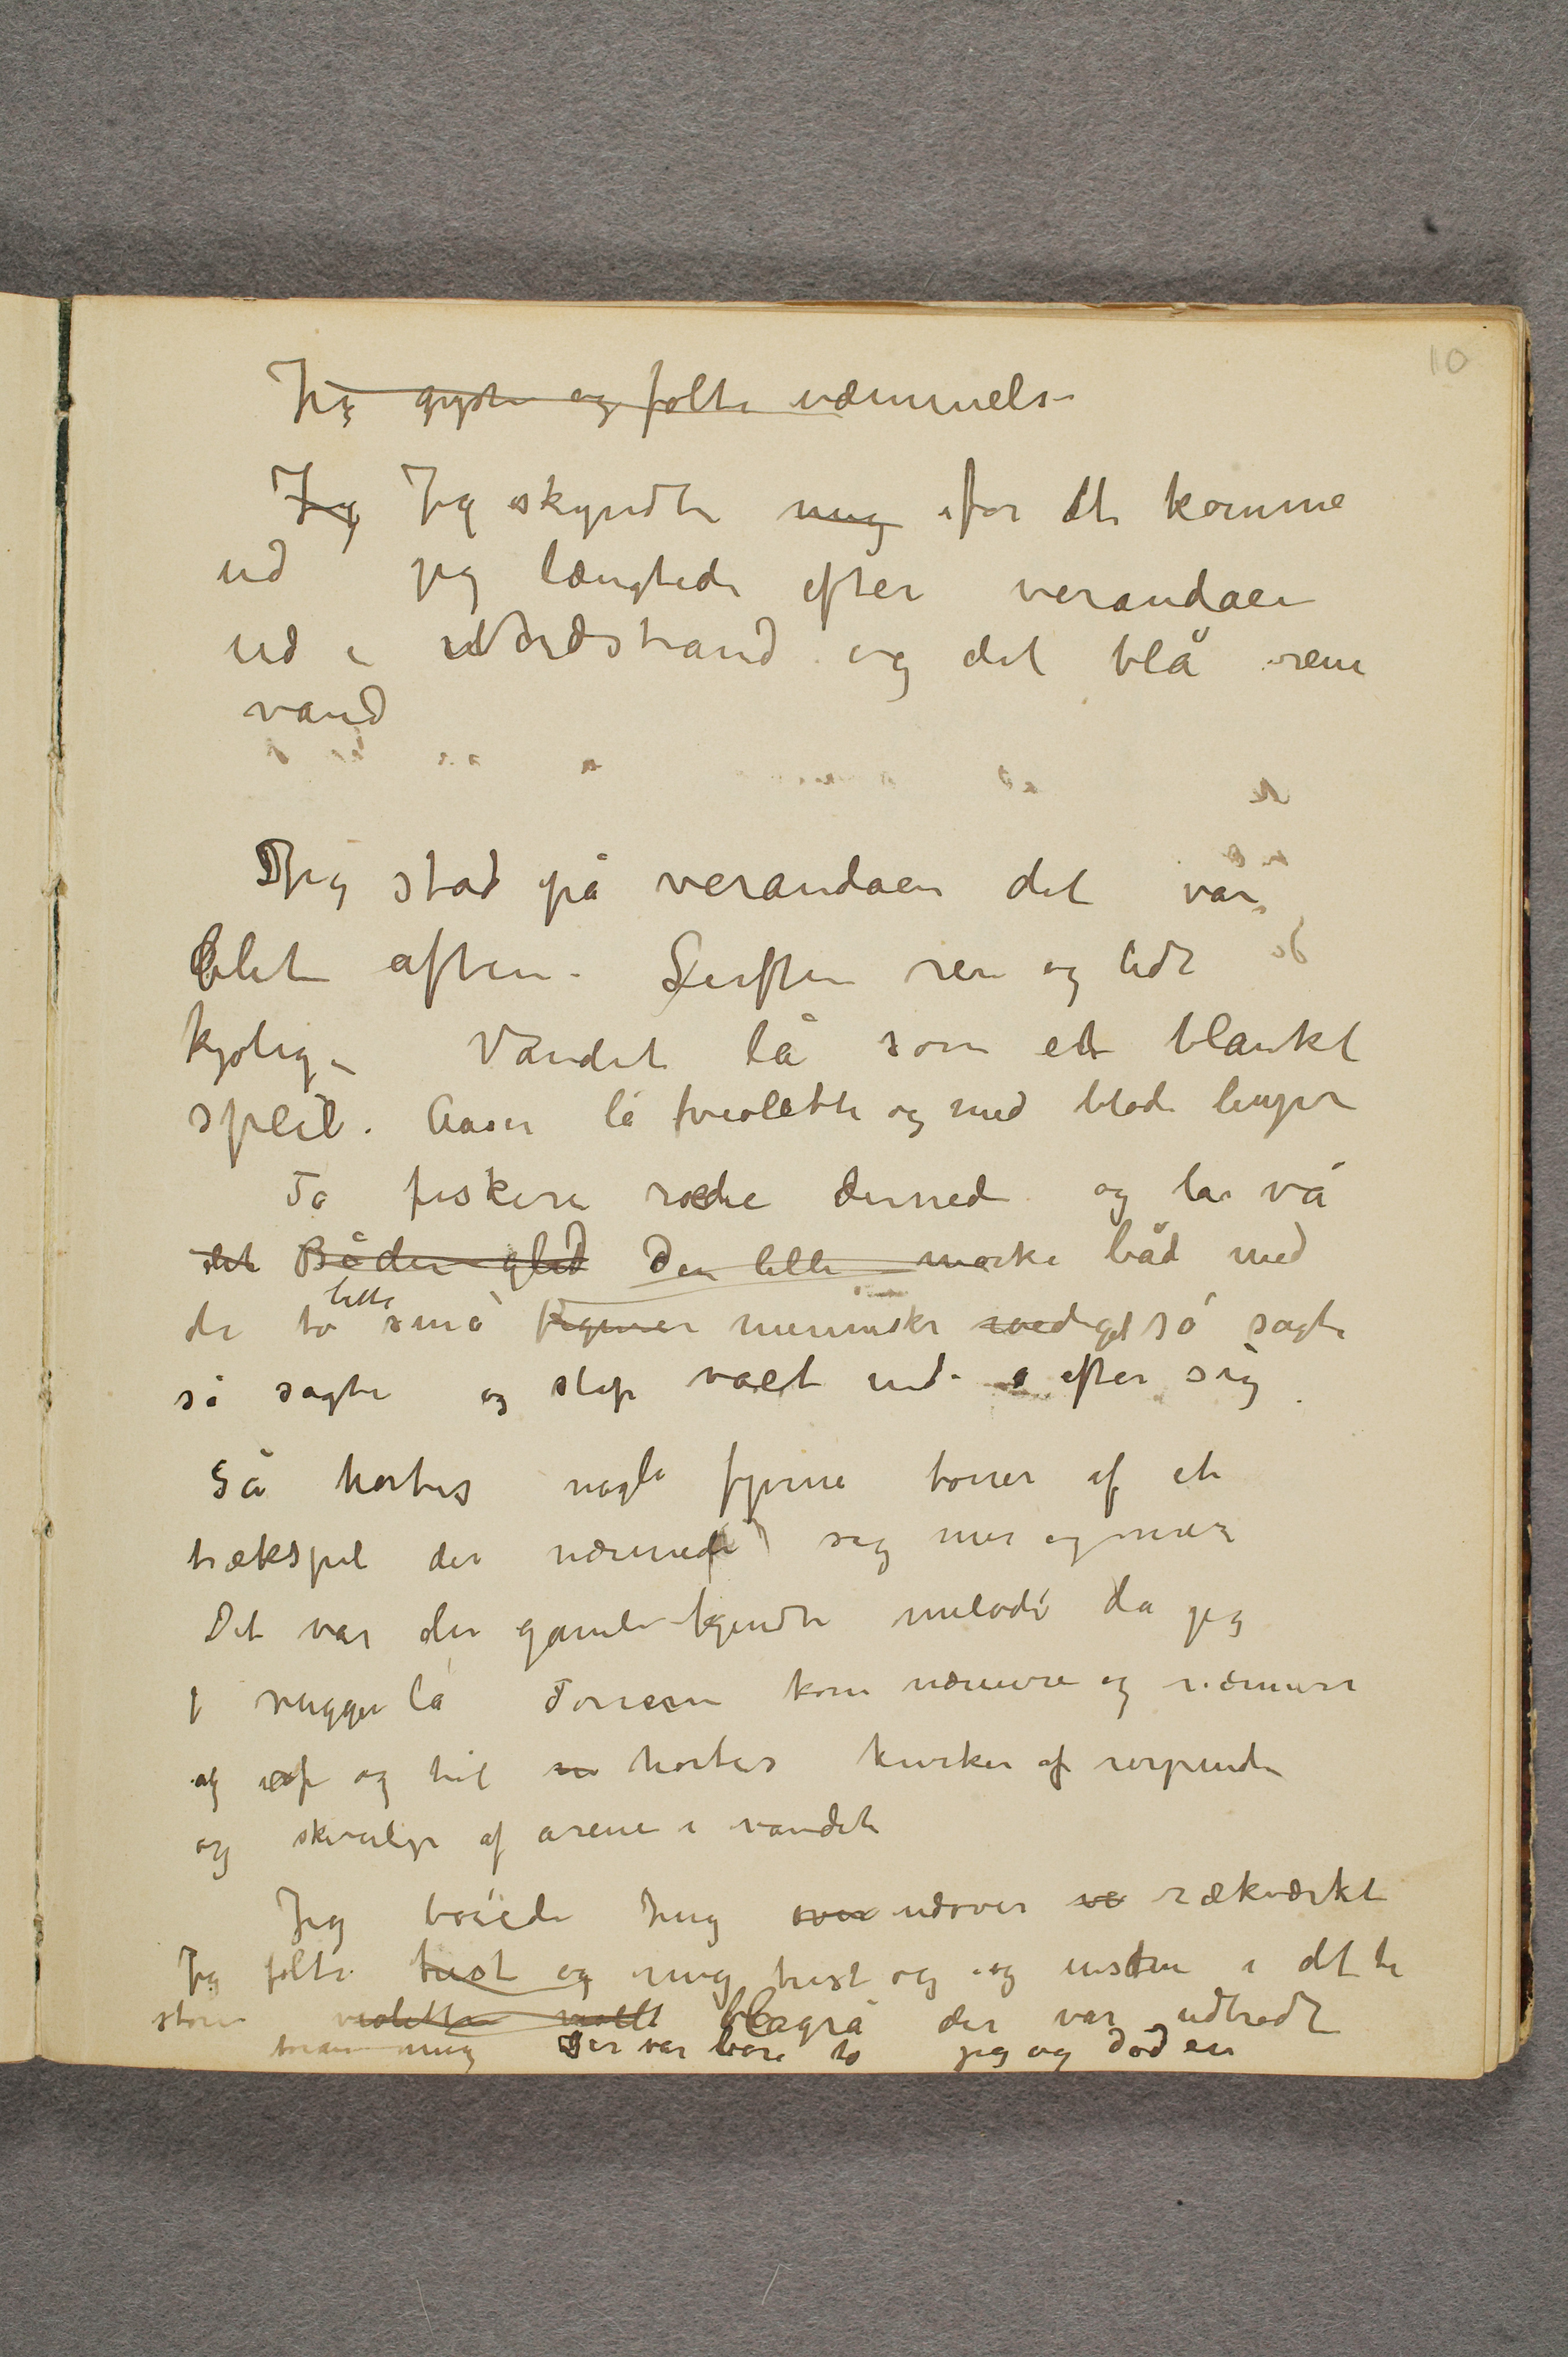 10
Jeg gyste og følte væmmelse
Jeg Jeg skyndte mig for at komme
ud jeg længtede efter verandaen
ud i Nordstrand og det blå rene
vand
Jeg stod på verandaen det var
blit aften. Luften ren og lidt
kjølig – Vandet lå som et blankt
speil. Aaser lå violette og med bløde linjer
To fiskere rode derned og lar vå
det Båden gled Den lille mørke båd med
lette
de to små figurer mennisker så sagte
så sagte og slap vået ud efter sig
Så hørtes nogle fjerne toner af et
trækspil der nærmed sig mer og mer
Det var den gamle kjendte melodi da jeg
i vuggen lå Tonerne kom nærmere og nærmere
og af og til hørtes knirken af rorpinde
og skvulpe af årene i vandet
Jeg bøiede mig over udover ve rækværket
Jeg følte trist og mig trist og og enslig i dette
store violette blågrå der var udbredt
foran mig Der var bare to jeg og døden